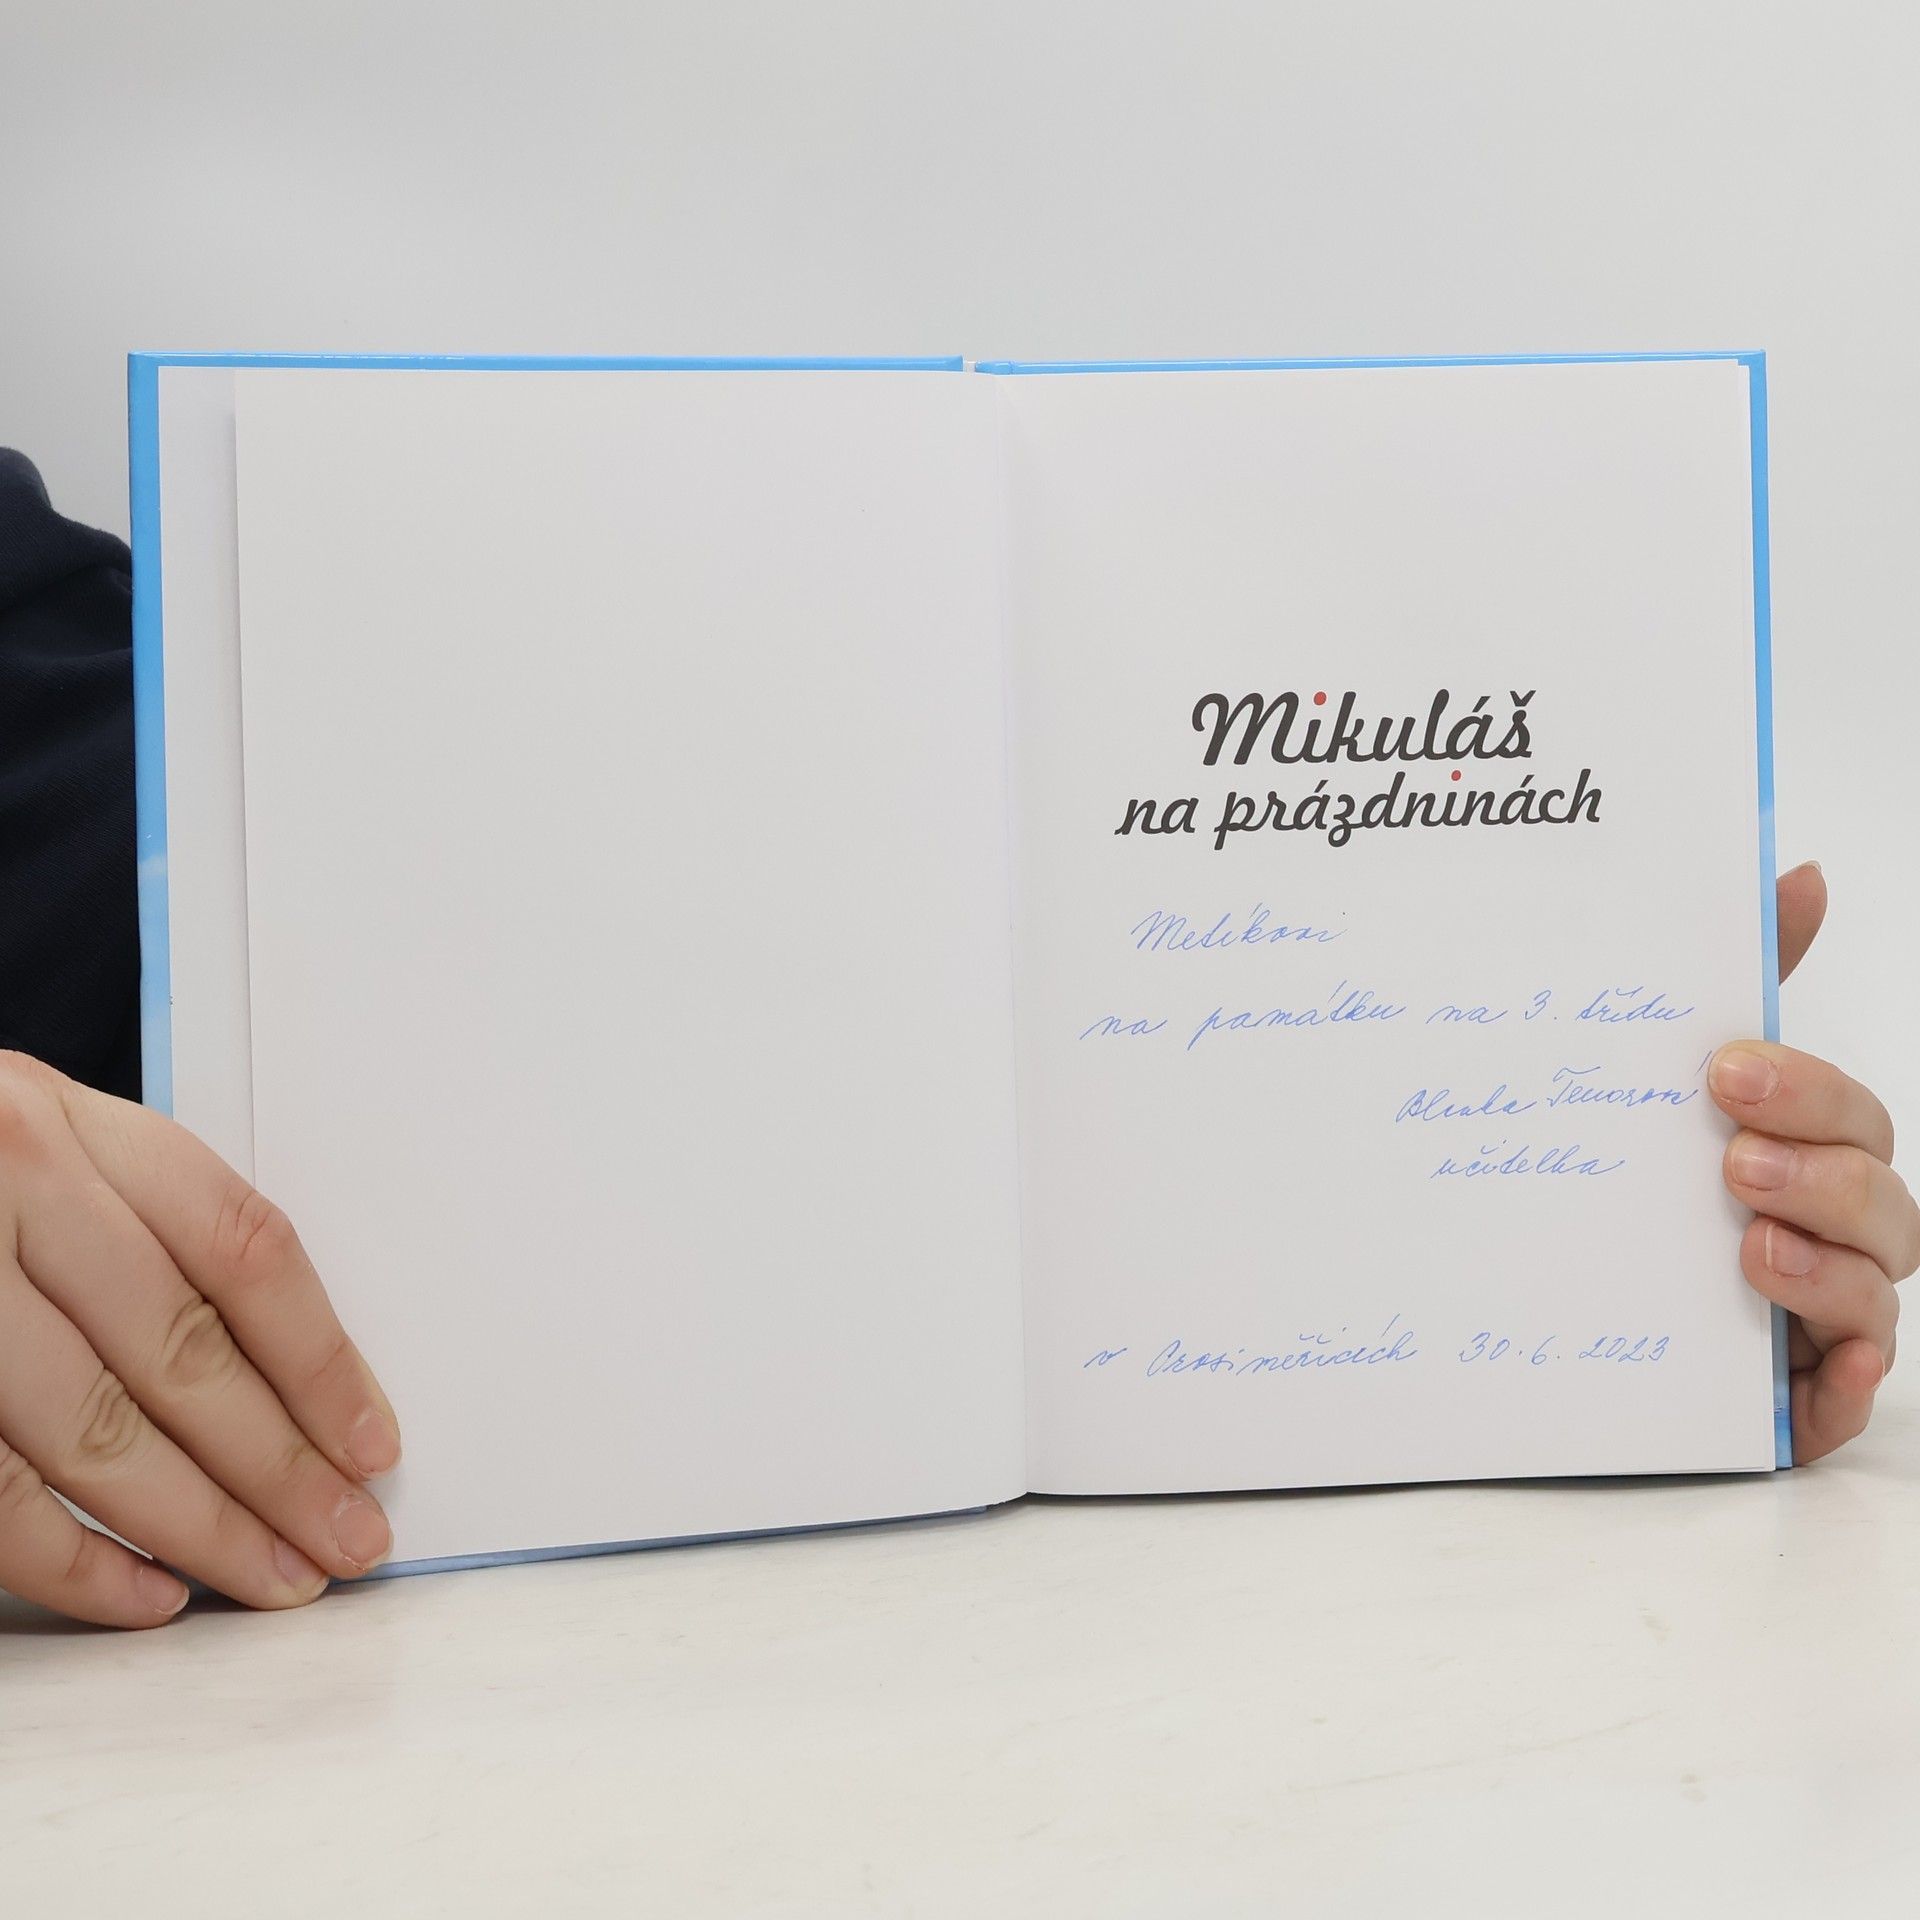 Mikuláš
na prázdninách
Metíkovi
na památku na 3. třídu
Blanka Tenorová
učitelka
v Prosiměřicích 30. 6. 2023